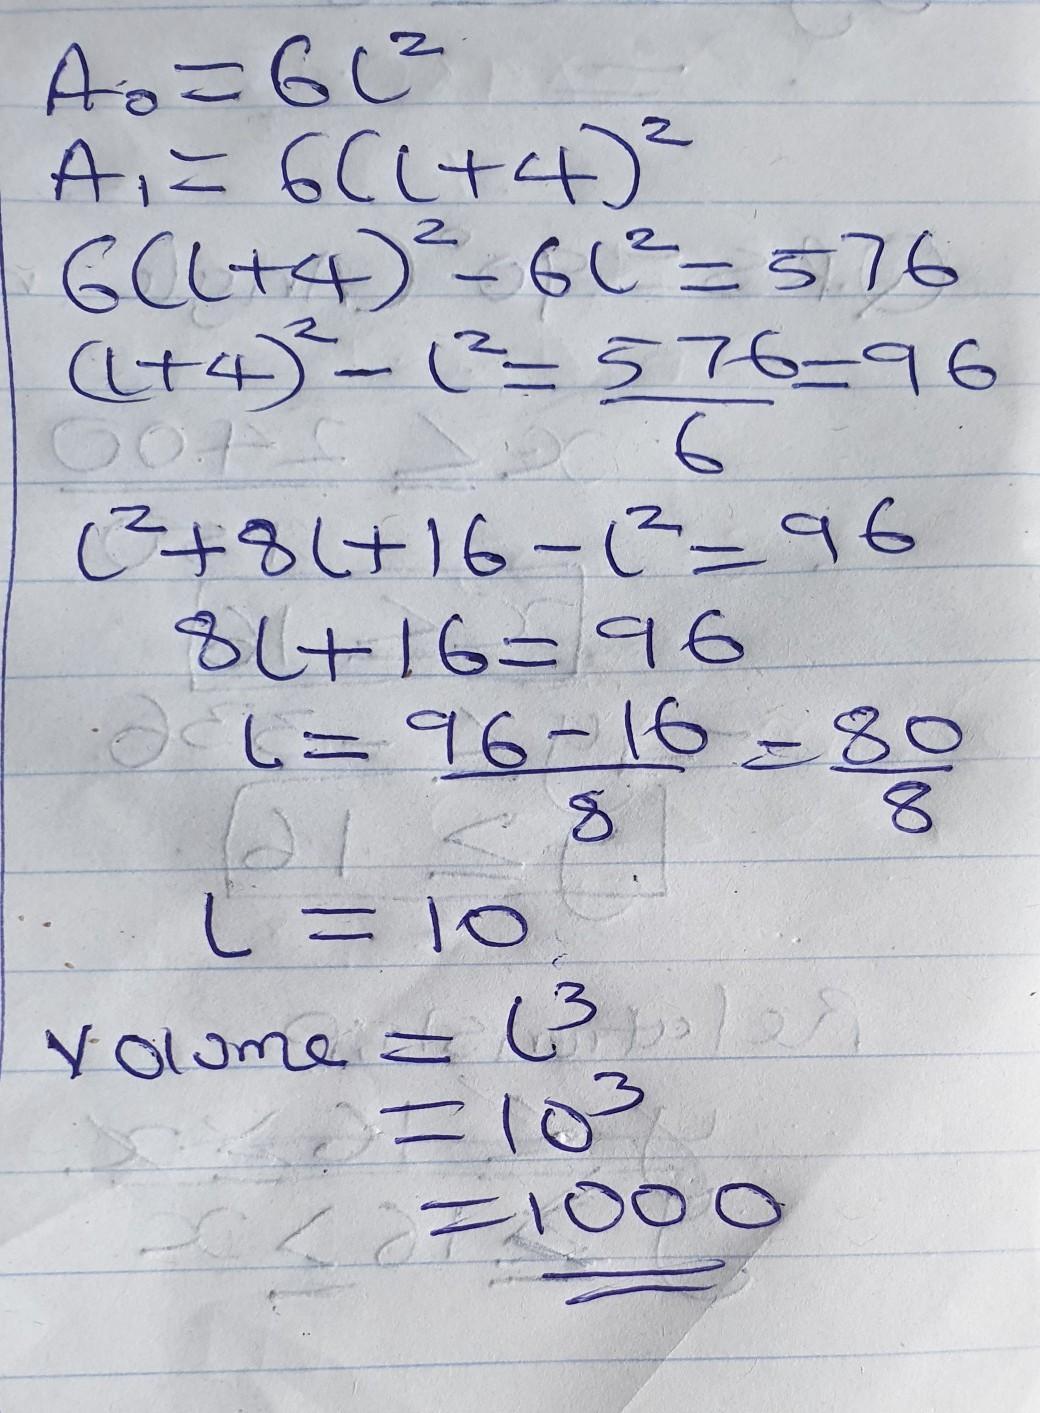 A₀ = 6l²
A₁ = 6(l+4)²
6(l+4)² - 6l² = 576
(l+4)² - l² = 576/6 = 96
l² + 8l + 16 - l² = 96
8l + 16 = 96
l = 96 - 16/8 = 80/8
l = 10
Volume = l³
= 10³
= 1000